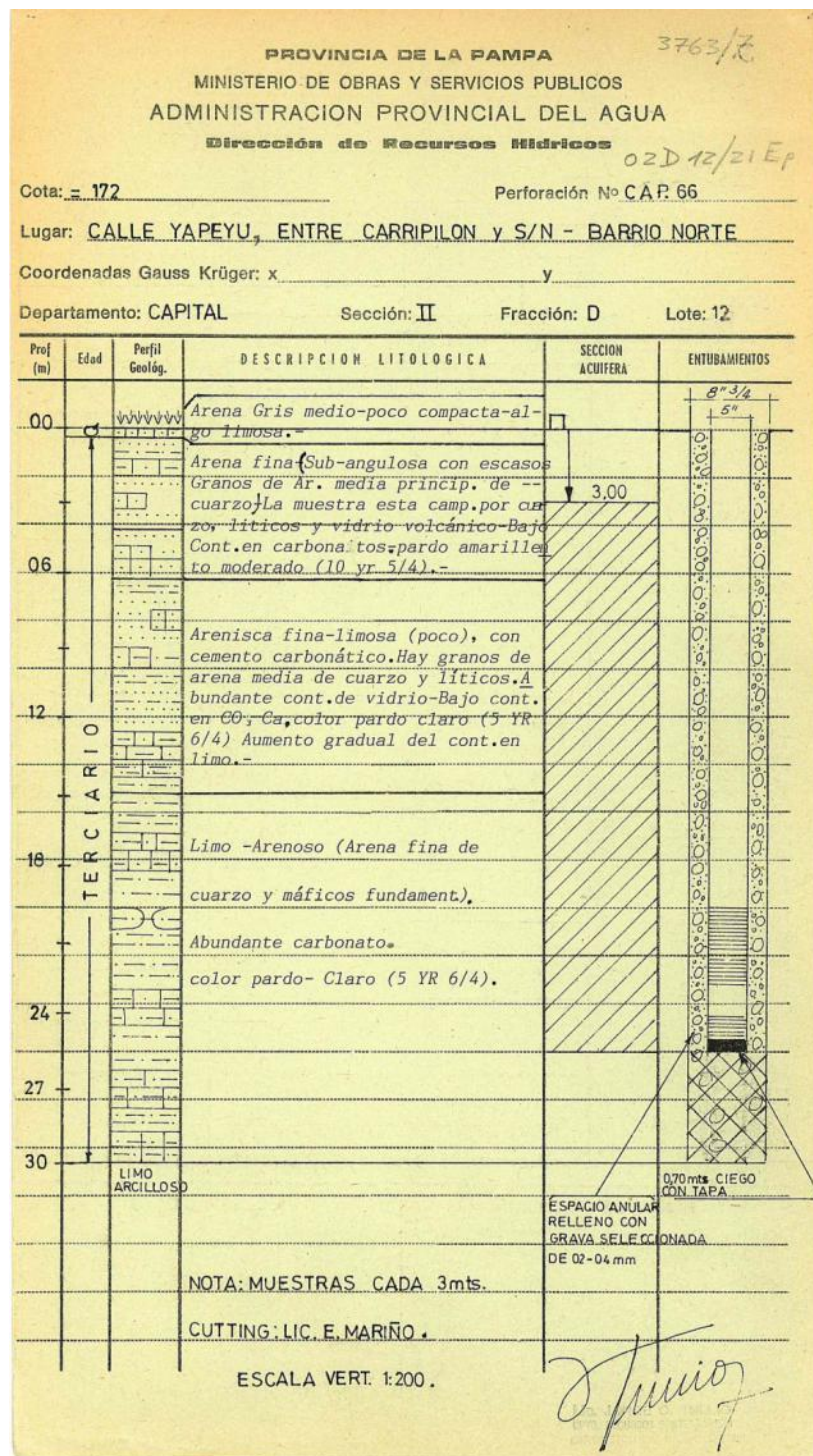 3763/
PROVINCIA DE LA PAMPA
MINISTERIO DE OBRAS Y SERVICIOS PUBLICOS
ADMINISTRACION PROVINCIAL DEL AGUA
Dirección de Recursos Hídricos
02D 12/21 Ep
Cota: = 172 Perforación Nº CAP. 66
Lugar: CALLE YAPEYU, ENTRE CARRIPILON y S/N - BARRIO NORTE
Coordenadas Gauss Krüger: x y
Departamento: CAPITAL Sección: II Fracción: D Lote: 12
Prof (m) Edad Perfil Geológ. DESCRIPCION LITOLOGICA SECCION ACUIFERA ENTUBAMIENTOS
8" 3/4
5"
00
Q
Arena Gris medio-poco compacta-al-
go limosa.-
Arena fina (Sub-angulosa con escasos
Granos de Ar. media princip. de --
cuarzo) La muestra esta camp.por cua
zo, líticos y vidrio volcánico-Bajo
Cont.en carbona tos-pardo amarillen
to moderado (10 yr 5/4).-
3,00
06
Arenisca fina-limosa (poco), con
cemento carbonático.Hay granos de
arena media de cuarzo y líticos.A
bundante cont.de vidrio-Bajo cont.
en CO3 Ca,color pardo claro (5 YR
6/4) Aumento gradual del cont.en
limo.-
12
TERCIARIO
Limo -Arenoso (Arena fina de
cuarzo y máficos fundament.).
Abundante carbonato.
color pardo- Claro (5 YR 6/4).
18
24
27
30
LIMO
ARCILLOSO
0,70 mts CIEGO
CON TAPA
ESPACIO ANULAR
RELLENO CON
GRAVA SELECCIONADA
DE 02-04 mm
NOTA: MUESTRAS CADA 3mts.
CUTTING: LIC. E. MARIÑO.
ESCALA VERT. 1:200.